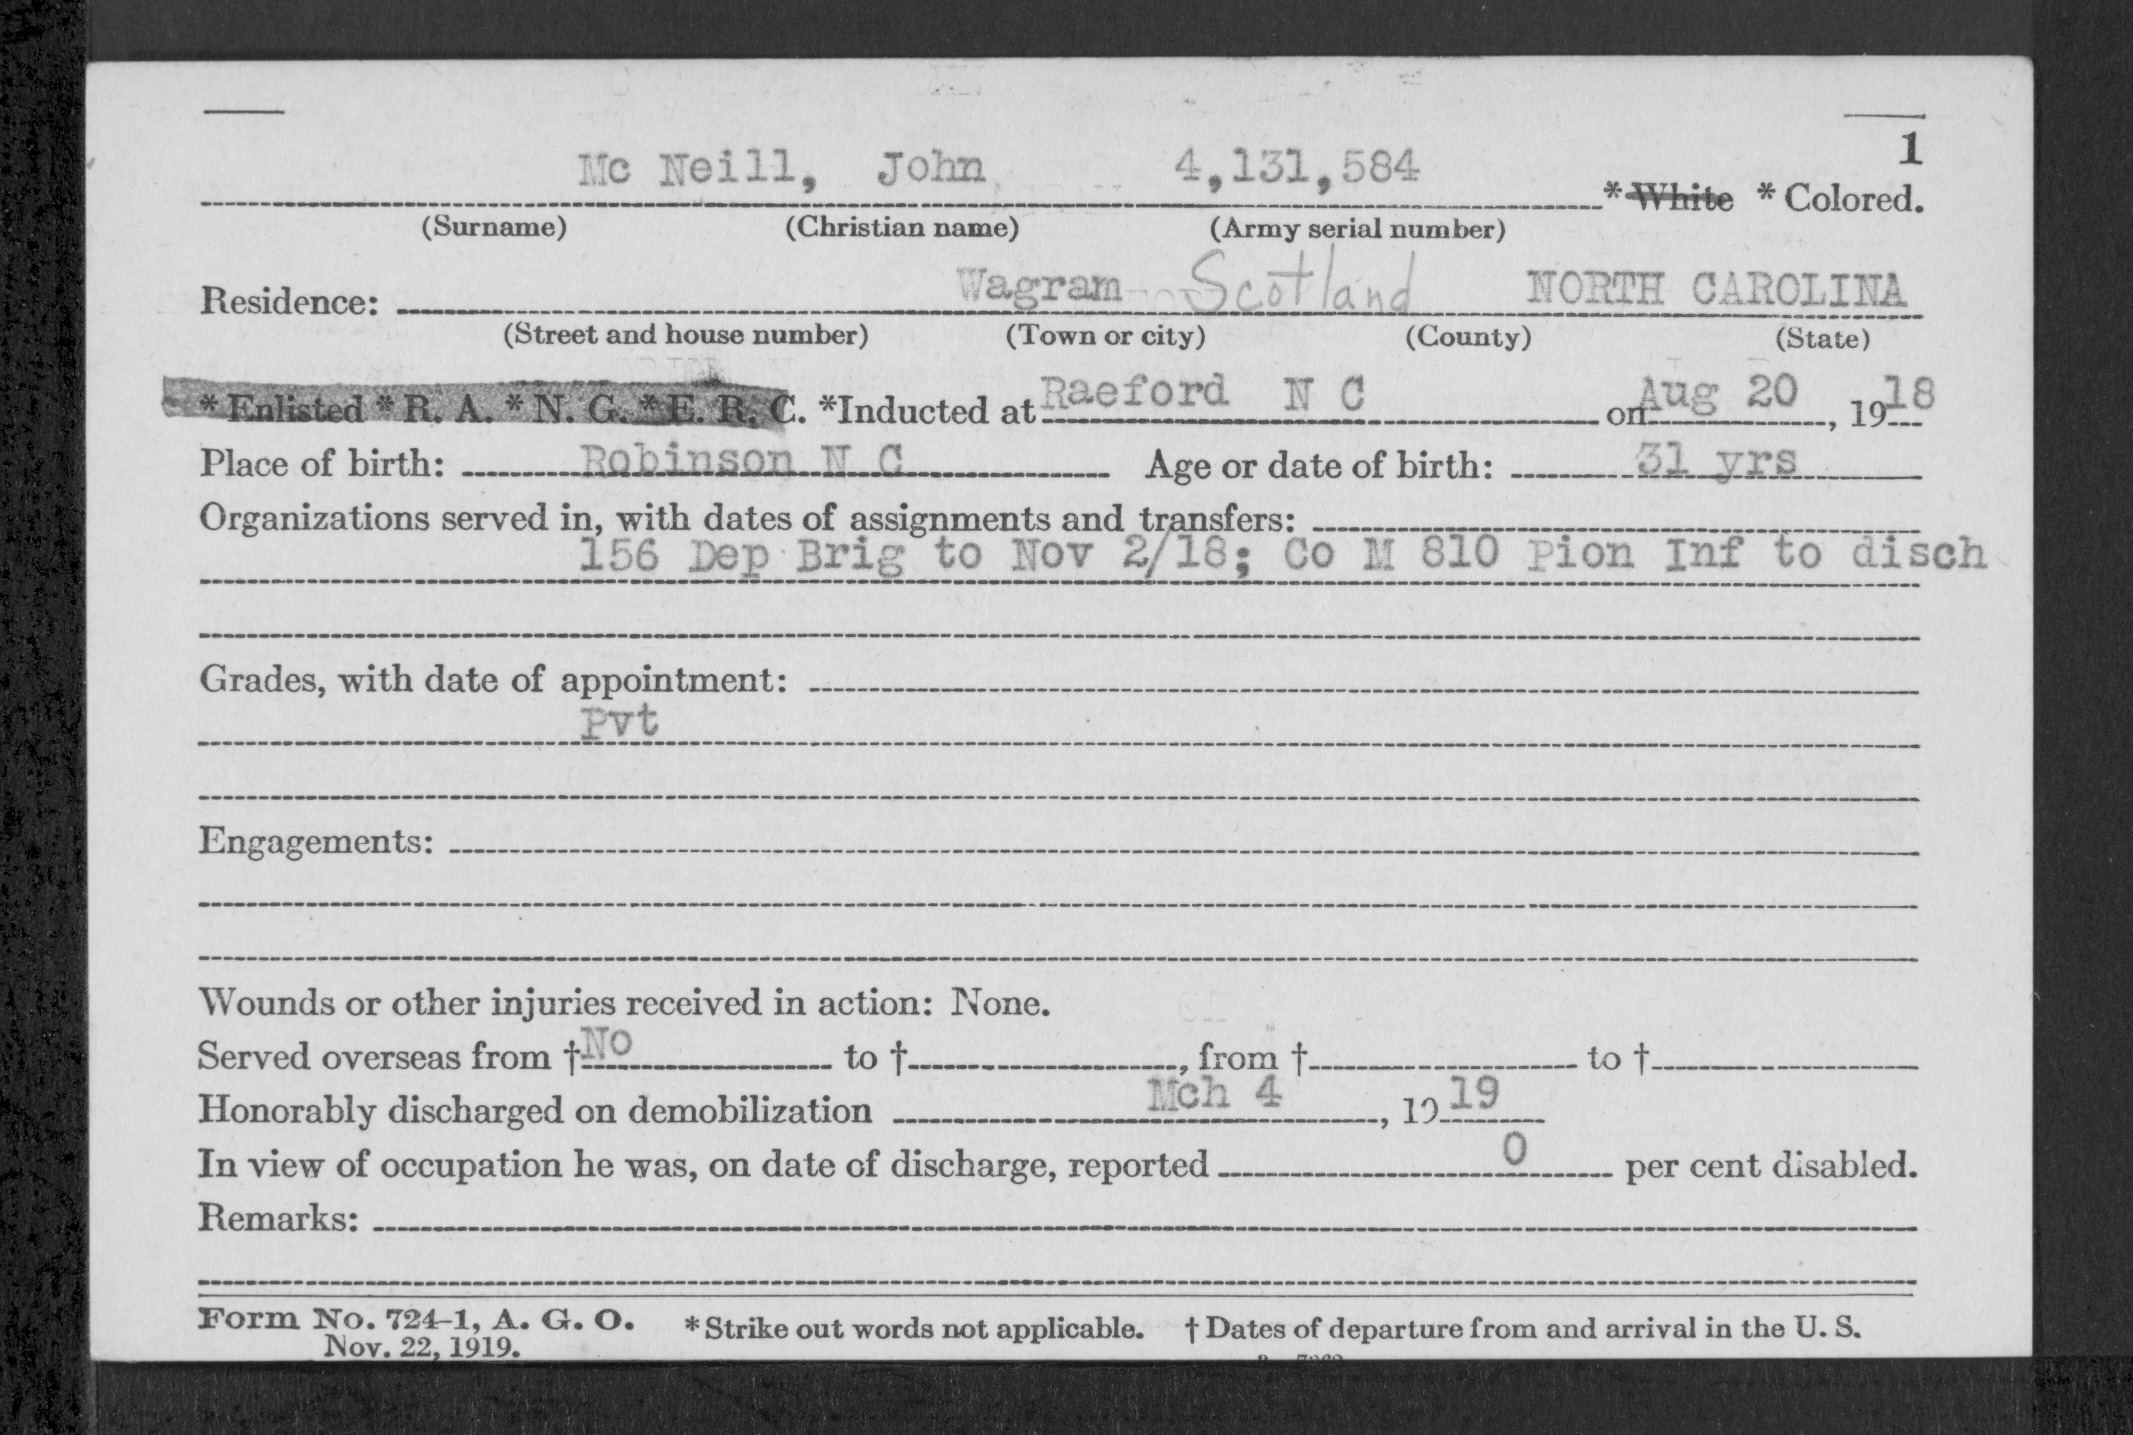 1
Mc Neill, John 4,131,584 * White * Colored.
(Surname) (Christian name) (Army serial number)
Residence: Wagram Scotland NORTH CAROLINA
(Street and house number) (Town or city) (County) (State)
* Enlisted * R. A. * N. G. * E. R. C. *Inducted at Raeford N C on Aug 20, 1918
Place of birth: Robinson N C Age or date of birth: 31 yrs
Organizations served in, with dates of assignments and transfers:
156 Dep Brig to Nov 2/18; Co M 810 Pion Inf to disch
Grades, with date of appointment:
Pvt
Engagements:
Wounds or other injuries received in action: None.
Served overseas from † No to †, from † to †
Honorably discharged on demobilization Mch 4, 1919
In view of occupation he was, on date of discharge, reported 0 per cent disabled.
Remarks:
Form No. 724-1, A. G. O. * Strike out words not applicable. † Dates of departure from and arrival in the U. S.
Nov. 22, 1919.